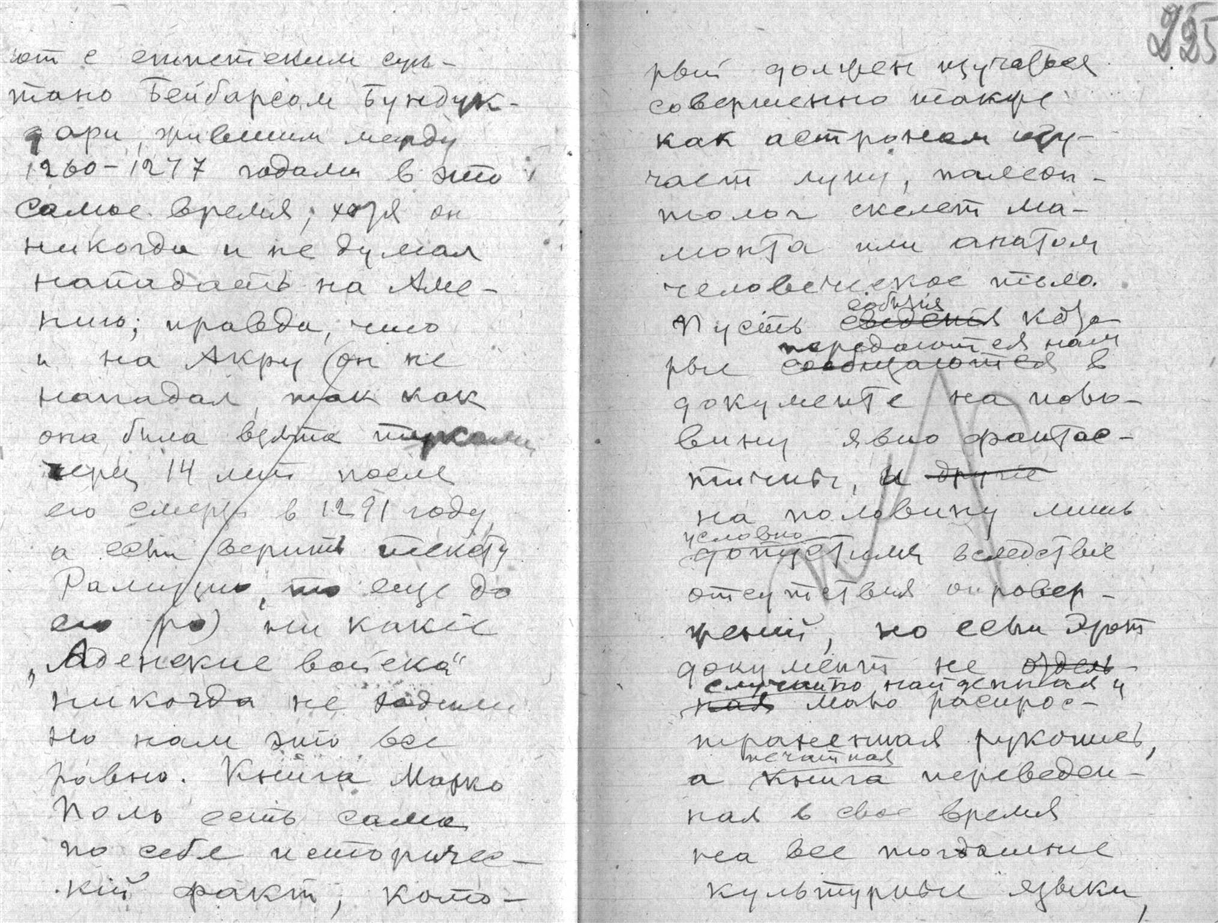 ют с египетским сул-
тано Бейбарсом Бундук-
дари, жившим между
1260-1277 годами в это
самое время, хотя он
никогда и не думал
нападать на Аме-
нию; правда, что
и на Акру (он не
нападал, так как
она была взята турками
через 14 лет после
его смерти в 1291 году,
а если верить тексту
Рамузио, то еще до
его ) ни какіе
„Аденские войска"
никогда не ходили
но нам это все
равно. Книга Марко
Поло есть сама
по себе историчес-
кий факт, кото-
225
рый должен изучаться
совершенно также
как астроном изу-
чает луну, палеон-
толог скелет ма-
монта или анатом
человеческое тело.
события
Пусть сведения кото-
передаются нам
рые сообщаются в
документе на поло-
вину явно фантас-
тичны, и другие
на половину лишь
условно
допустимы вследствие
отсутствия опровер-
жений, но если этот
документ не отдель-
случайно найденная и
ная мало распрос-
траненная рукопись,
печатная
а книга переведен-
ная в свое время
на все тогдашние
культурные языки,